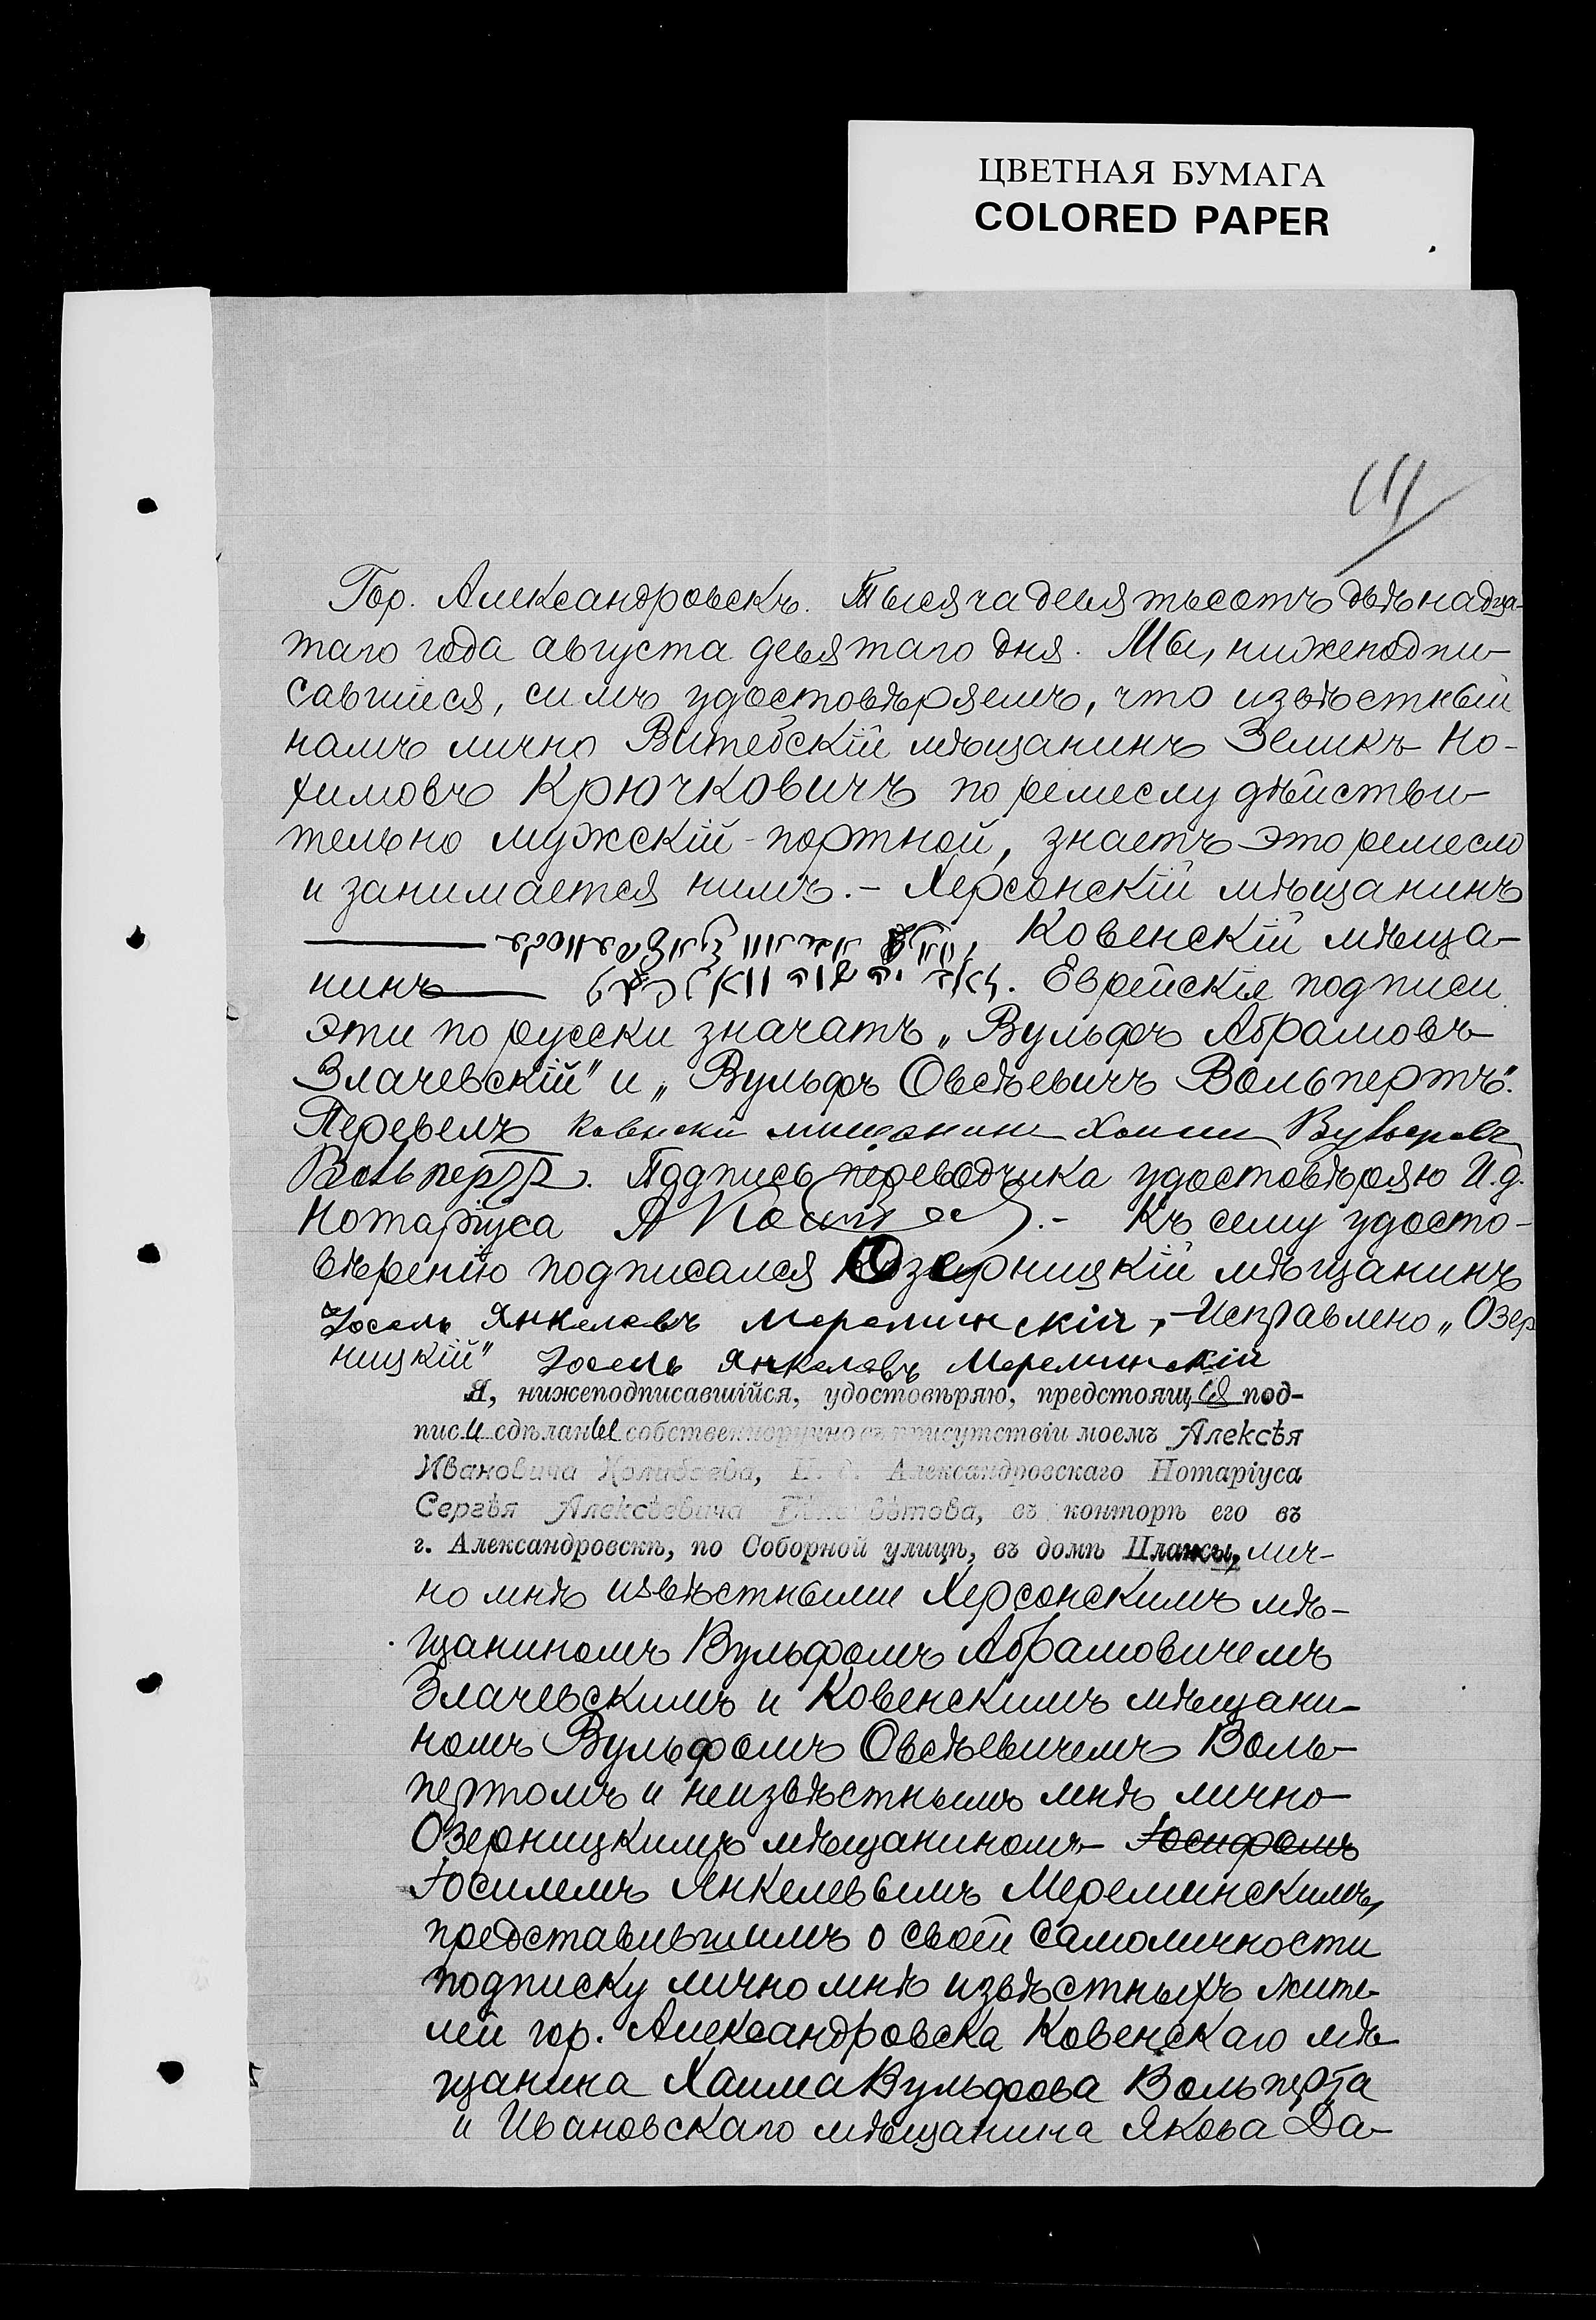 ЦВЕТНАЯ БУМАГА
COLORED PAPER
Гор. Александровскъ. Тысяча девятьсотъ двѣнадца-
таго года августа девятаго дня. Мы, нижеподпи-
савшіеся, симъ удостовѣряемъ, что извѣстный
намъ лично Витебскій мѣщанинъ Зеликъ Но-
химовъ Крючковичъ по ремеслу дѣйстви-
тельно мужскій-портной, знаетъ это ремесло
и занимается нимъ. - Херсонскій мѣщанинъ
Ковенскій мѣща-
нинъ Еврейскіе подписи
эти по русски значатъ „Вульфъ Абрамовъ
Злачевскій" и „Вульфъ Овсѣевичъ Вольпертъ".
Перевелъ Ковенски мищанинъ Хаимъ Вульфовъ
Вольпертъ. Подпись переводчика удостовѣряю И.д.
Нотаріуса А .- Къ сему удосто-
вѣренію подписался Озерницкій мѣщанинъ
Іосель Янкелевъ Мереминскій, - Исправлено „Озер
ницкій" Іосель Янкелевъ Мереминскій
Я, нижеподписавшійся, удостовѣряю, предстоящія под-
писи сдѣланы собственноручно въ присутствіи моемъ Алексѣя
Ивановича И. д. Александровскаго Нотаріуса
Сергѣя Алексѣевича въ конторѣ его въ
г. Александровскѣ, по Соборной улицѣ, въ домѣ Плаксы, лич-
но мнѣ извѣстными Херсонскимъ мѣ-
щаниномъ Вульфомъ Абрамовичемъ
Злачевскимъ и Ковенскимъ мѣщани-
номъ Вульфомъ Овсѣевичемъ Воль-
пертомъ и неизвѣстнымъ мнѣ лично
Озерницкимъ мѣщаниномъ Іосифомъ
Іосилемъ Янкелевымъ Мереминскимъ,
представившимъ о своей самоличности
подписку лично мнѣ извѣстныхъ жите-
лей гор. Александровска Ковенскаго мѣ-
щанина Хаима Вульфова Вольперта
и Ивановскаго мѣщанина Якова Да-